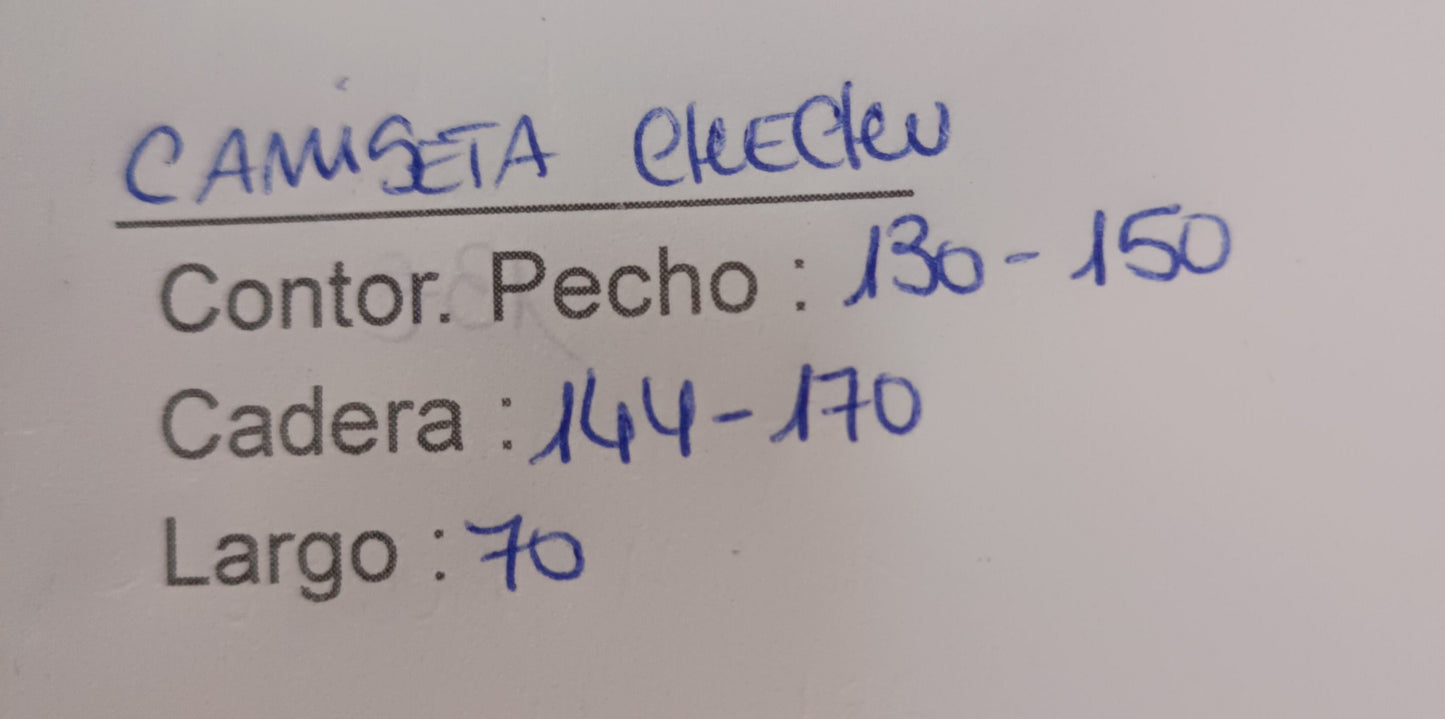 CAMISETA CHECHU
Contor. Pecho : 130 - 150
Cadera : 144 - 170
Largo : 70